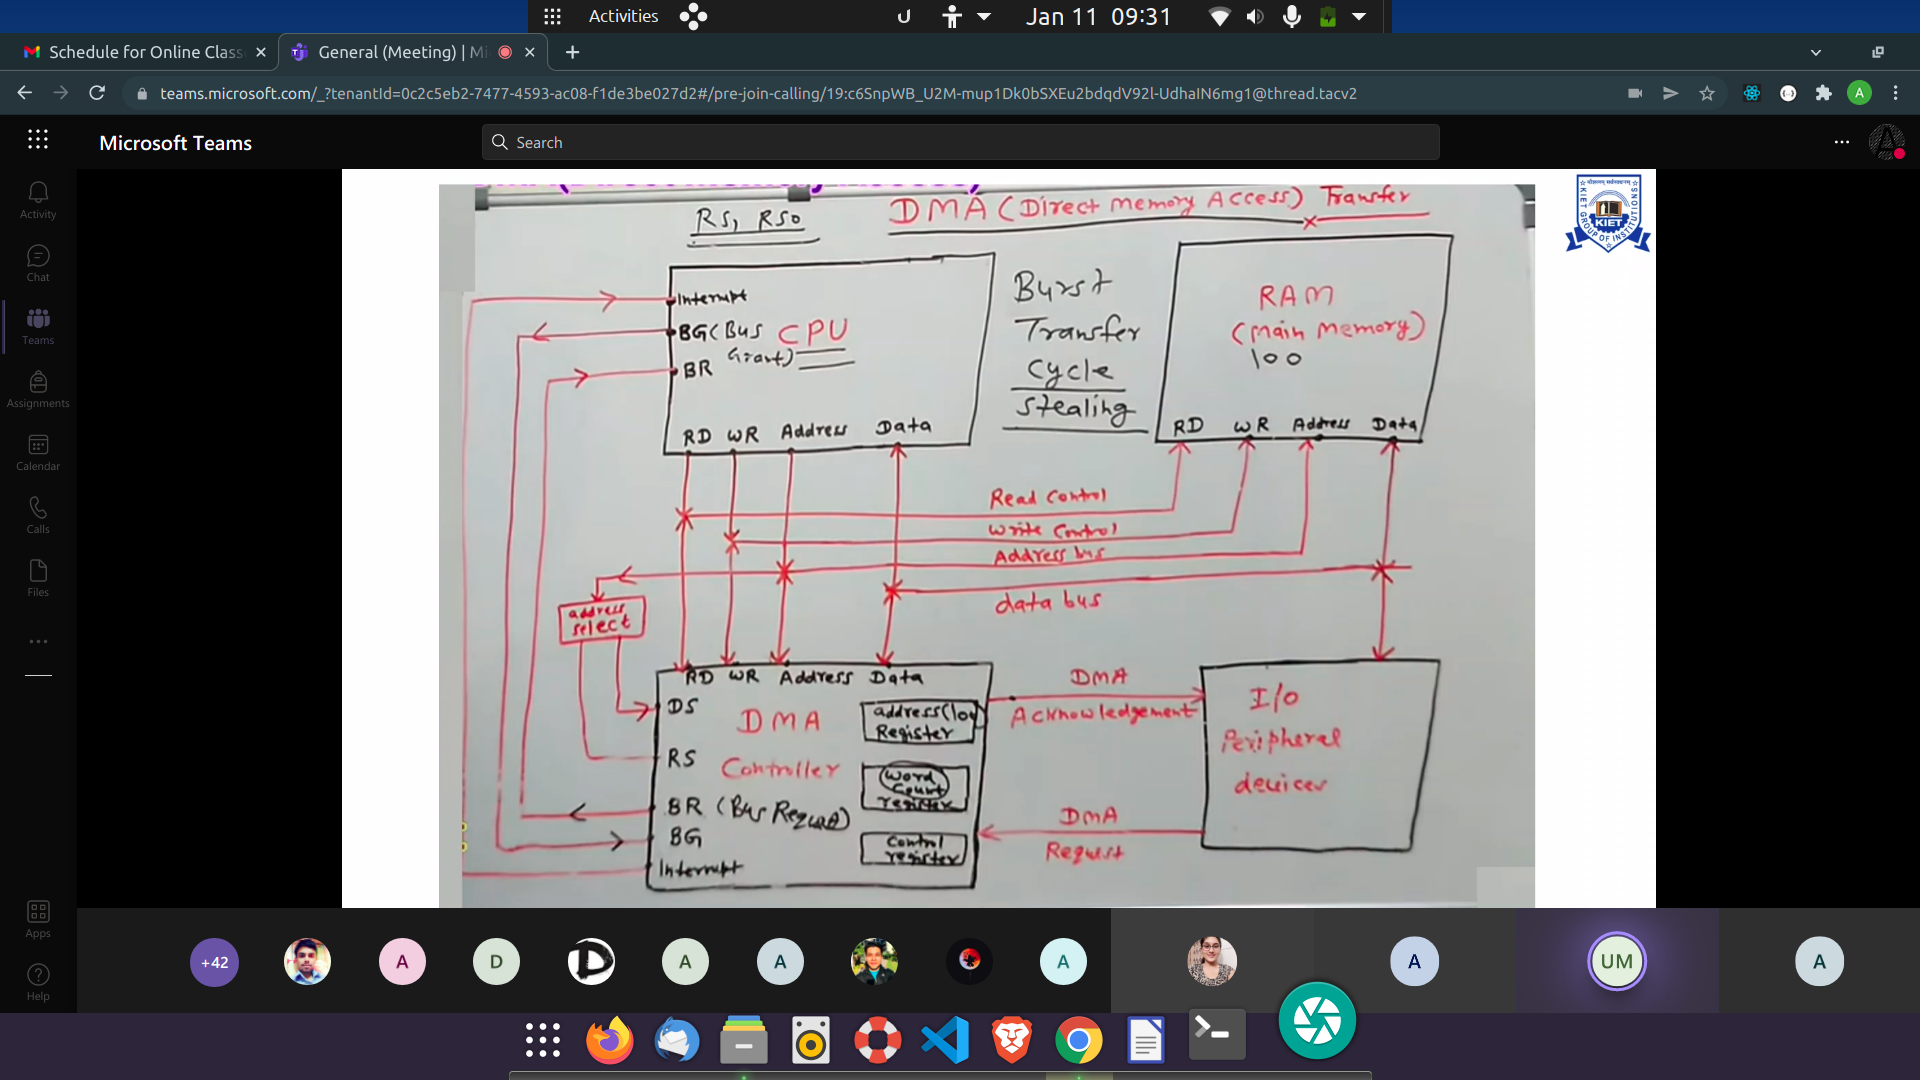 Activities
Jan 11 09:31
Schedule for Online Clas
General (Meeting) | Mi
teams.microsoft.com/_?tenantId=0c2c5eb2-7477-4593-ac08-f1de3be027d2#/pre-join-calling/19:c6SnpWB_U2M-mup1Dk0bSXEu2bdqdV92l-UdhaIN6mg1@thread.tacv2
A
Microsoft Teams
Search
Activity
Chat
Teams
Assignments
Calendar
Calls
Files
Apps
Help
KIET
KIET GROUP OF INSTITUTIONS
RS1 RS0
DMA (Direct Memory Access) Transfer
Interrupt
BG (Bus Grant)
BR
CPU
RD WR Address Data
Burst
Transfer
Cycle
Stealing
RAM
(Main Memory)
100
RD WR Address Data
Read Control
Write Control
Address bus
data bus
address
select
RD WR Address Data
DS
RS
BR (Bus Request)
BG
Interrupt
DMA
Controller
address (100
Register
Word
Count
register
Control
register
DMA
Acknowledgement
DMA
Request
I/O
Peripheral
devices
+42
A
D
D
A
A
A
A
UM
A